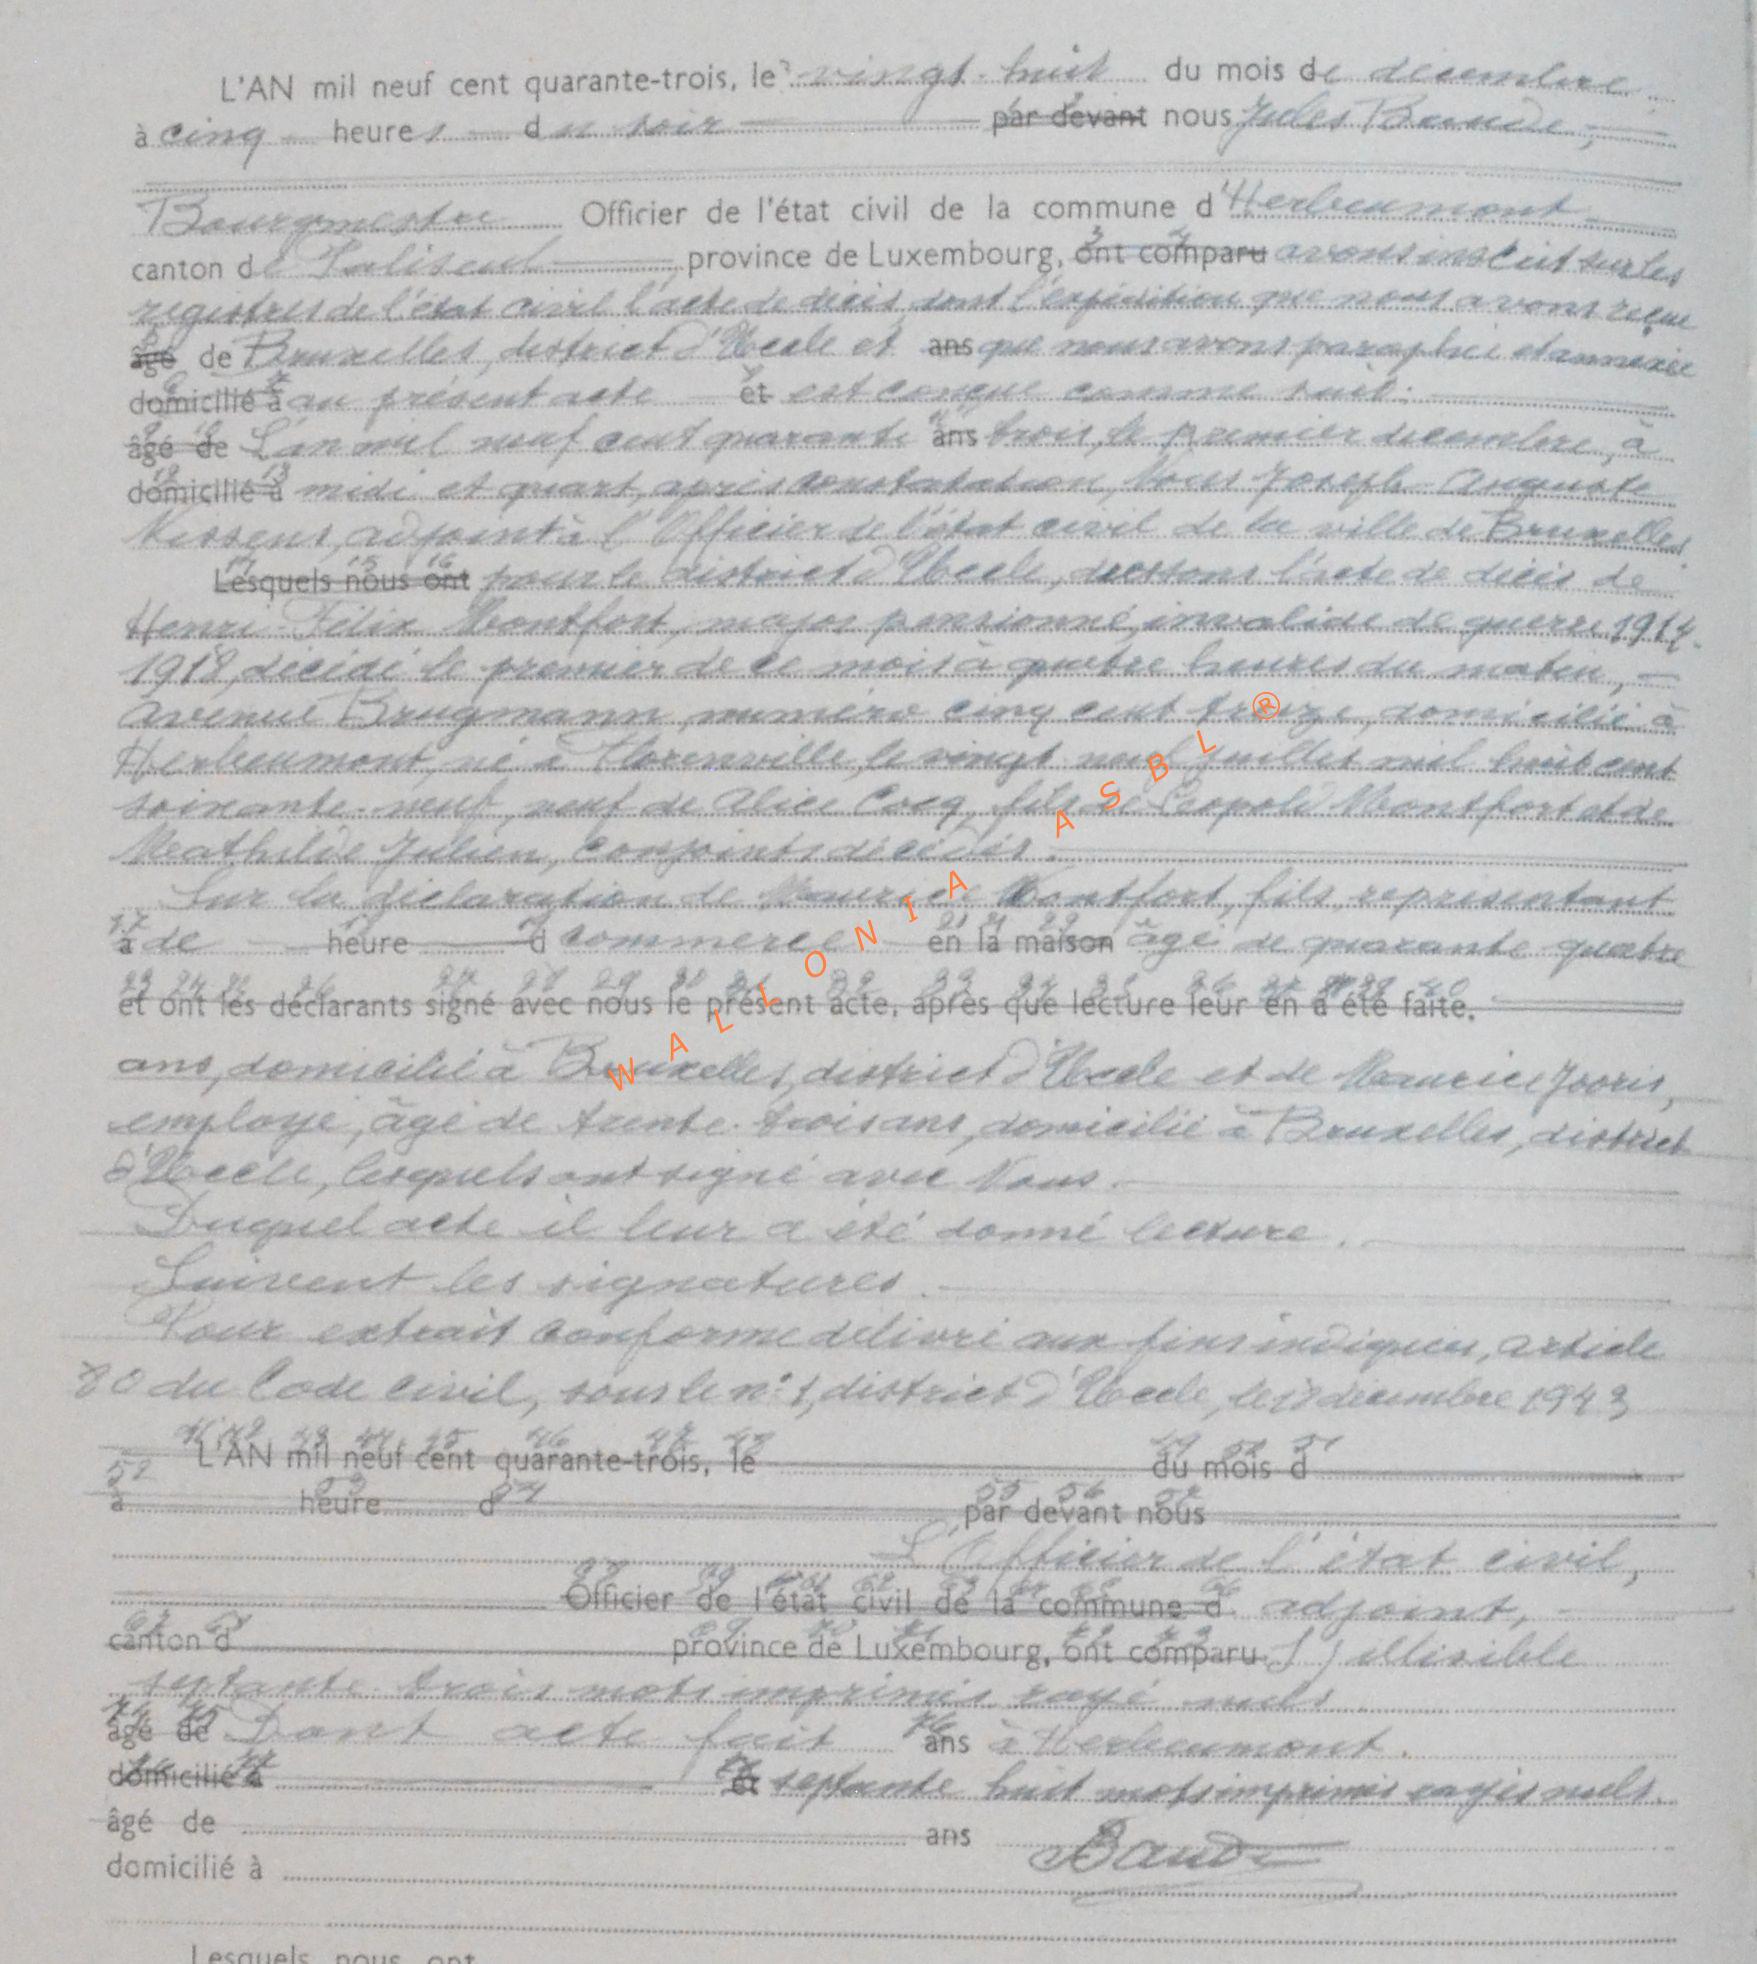 L'AN mil neuf cent quarante-trois, le vingt-huit du mois de décembre
à cinq heures du soir par devant nous Jules Baude,
Bourgmestre Officier de l'état civil de la commune d'Herbeumont
canton de Paliseul, province de Luxembourg, ont comparu avons inscrit sur les
registres de l'état civil l'acte de décès dont l'expédition que nous avons reçue
âgé de Bruxelles, district d'Uccle et ans que nous avons paraphée et annexée
domicilié à au présent acte et est conçue comme suit:
âgé de L'an mil neuf cent quarante ans trois, le premier décembre, à
domicilié à midi et quart, après constatation, Nous Joseph Auguste
adjoint à l'Officier de l'état civil de la ville de Bruxelles
Lesquels nous ont pour le district d'Uccle, dressons l'acte de décès de
Henri Félix Montfort, major pensionné, invalide de guerre 1914-
1918, décédé le premier de ce mois à quatre heures du matin,
Avenue Brugmann, numéro cinq cent treize, domicilié à
Herbeumont, né à Florenville, le vingt neuf juillet mil huit cent
soixante-neuf, veuf de Alice Cocq, fils de Léopold Montfort et de
Mathilde Julien, conjoints décédés.
Sur la déclaration de Maurice Montfort, fils, représentant
à de heure d commerce en la maison âgé de quarante quatre
et ont les déclarants signé avec nous le présent acte, après que lecture leur en a été faite.
ans, domicilié à Bruxelles, district d'Uccle et de Maurice Jooris,
employé, âgé de trente-trois ans, domicilié à Bruxelles, district
d'Uccle, lesquels ont signé avec Nous.
Duquel acte il leur a été donné lecture.
Suivent les signatures.
Pour extrait conforme délivré aux fins indiquées, article
80 du Code civil, sous le n° 1, district d'Uccle, le décembre 1943
L'AN mil neuf cent quarante-trois, le du mois d
à heure d par devant nous
L'Officier de l'état civil,
Officier de l'état civil de la commune d adjoint,
canton d province de Luxembourg, ont comparu s) illisible
septante-trois mots imprimés rayé nuls
âgé de Dont acte fait ans à Herbeumont.
domicilié à et septante huit mots imprimés rayés nuls.
âgé de ans Baude
domicilié à
Lesquels nous ont
WALLONIA ASBL ®